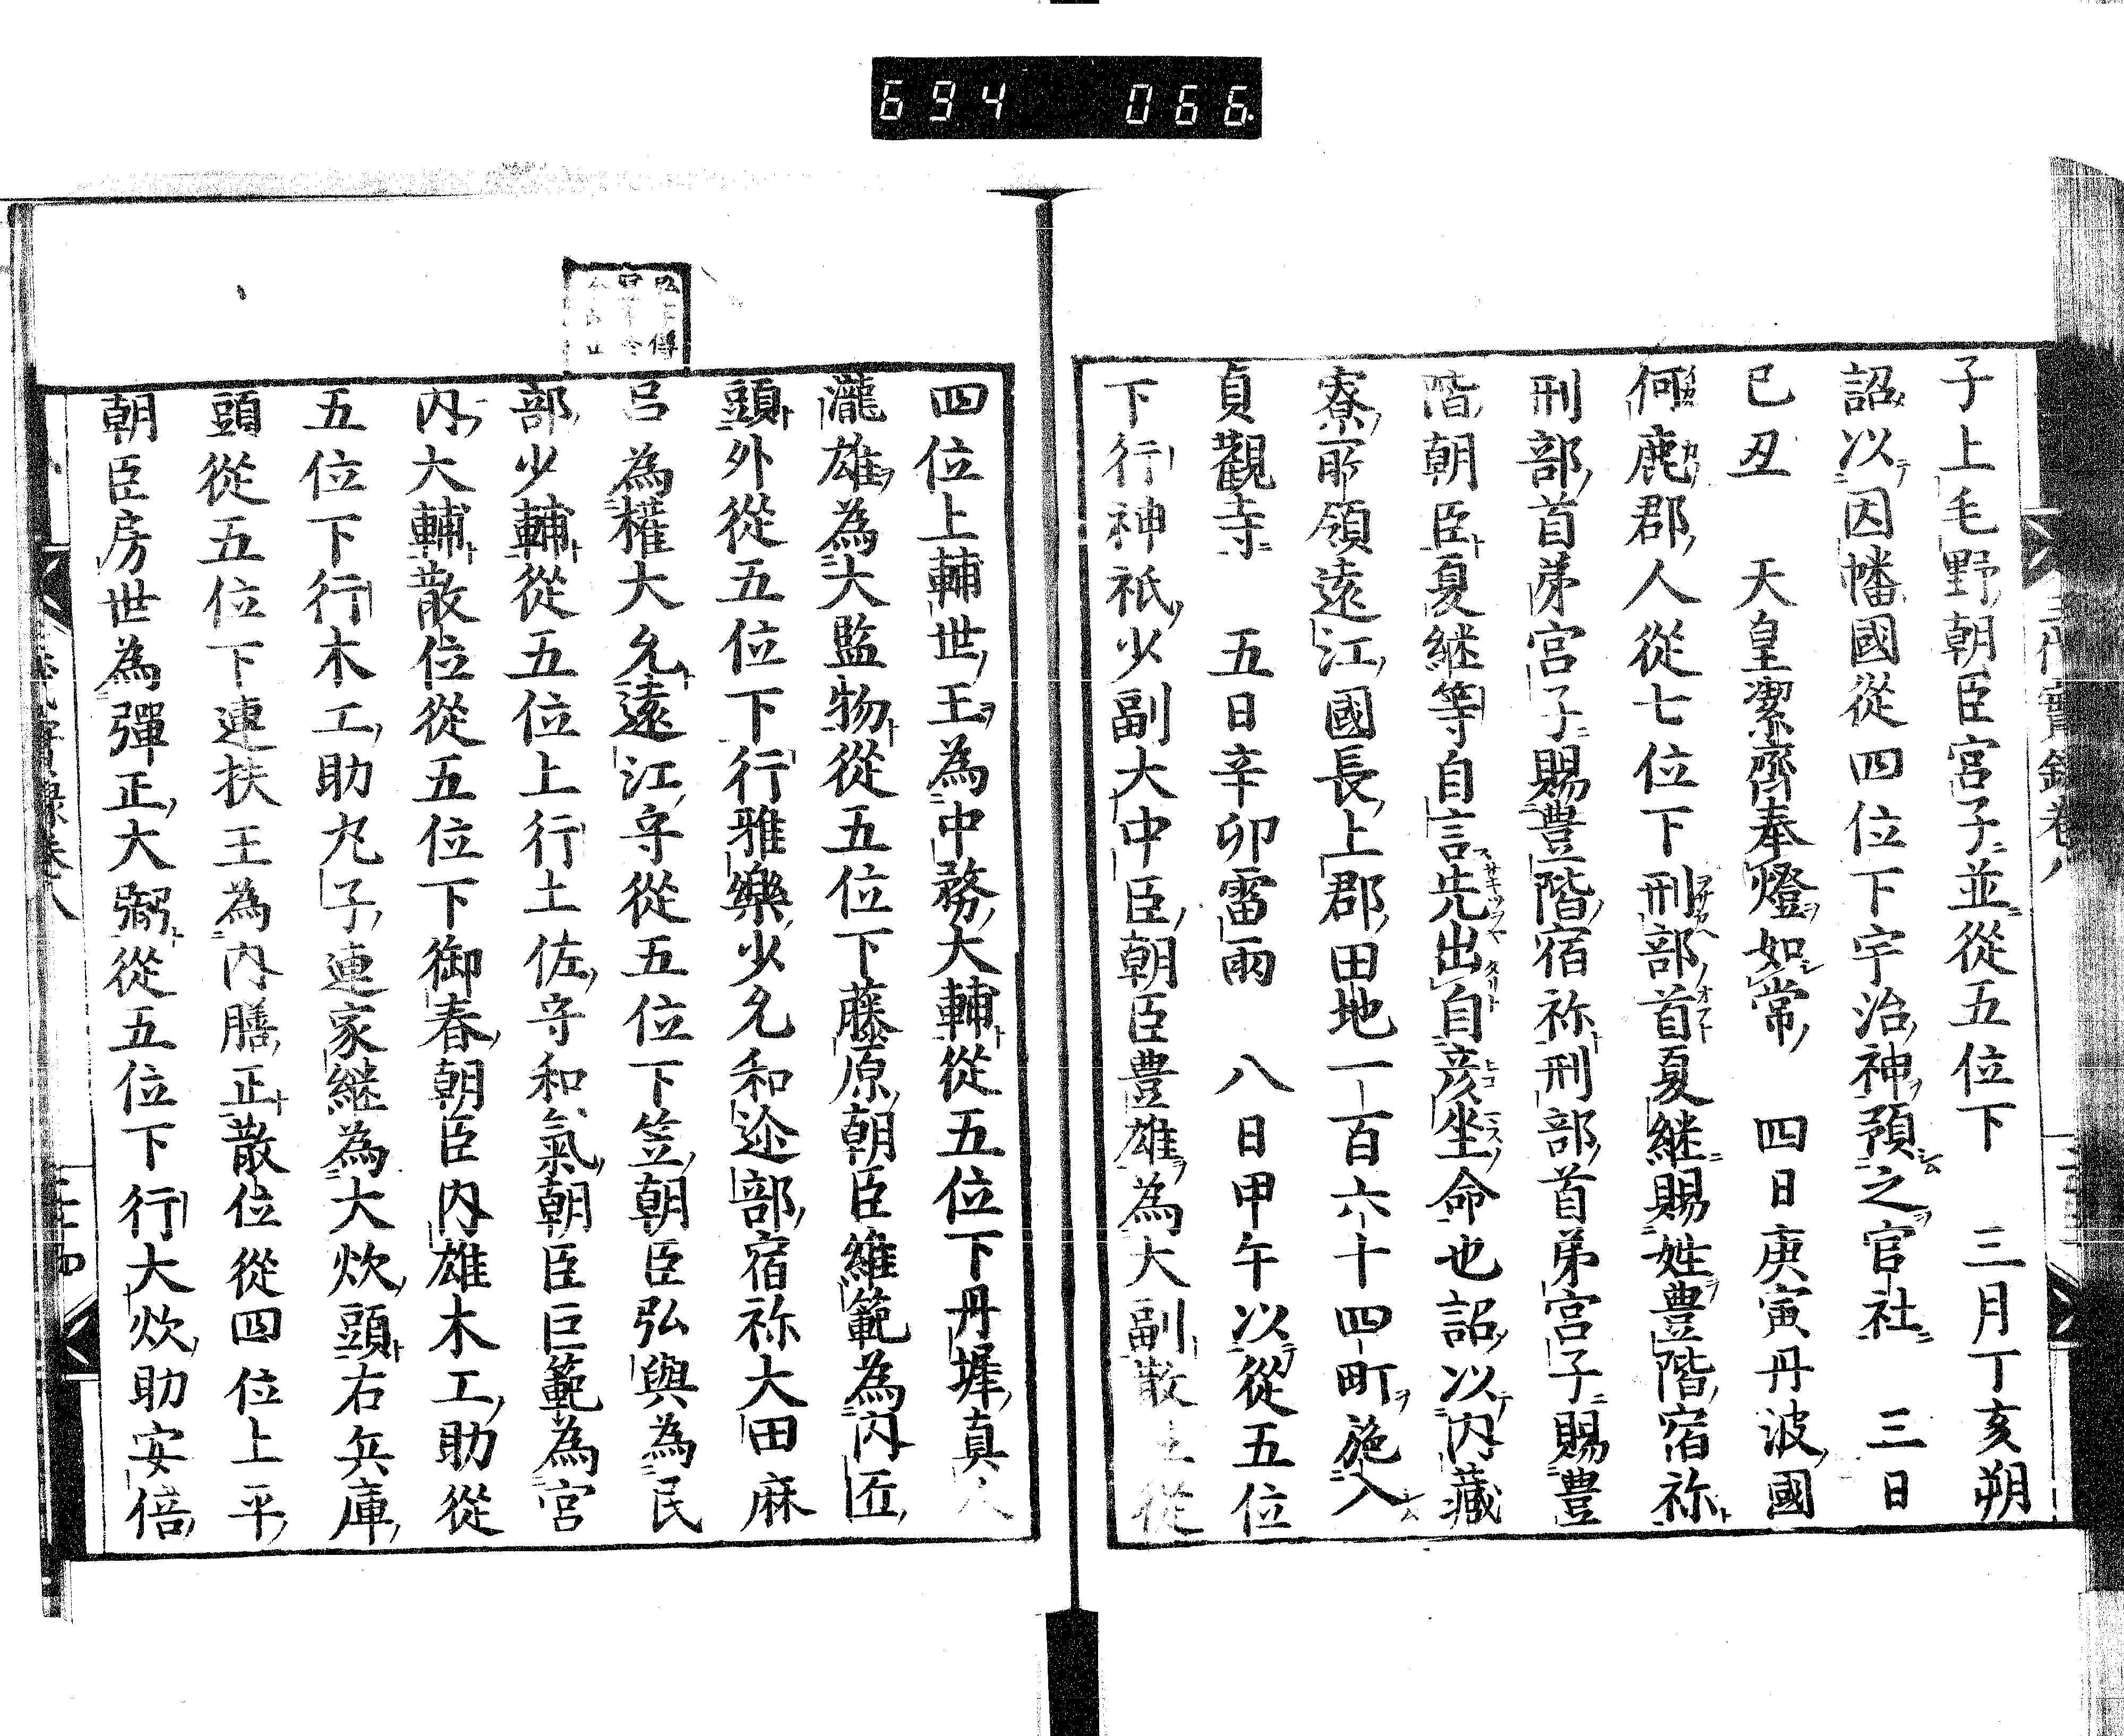 694 066
子上毛野朝臣宮子並從五位下　三月丁亥朔
詔以因幡國從四位下宇治神預之官社　三日
已丑　天皇潔齋奉燈如常　四日庚寅丹波國
何鹿郡人從七位下刑部首夏継賜姓豊階宿祢
刑部首弟宮子賜豊階宿祢刑部首弟宮子賜豊
階朝臣夏継等自言先出自彦坐命也詔以内藏
寮所領遠江國長上郡田地一百六十四町施入
貞觀寺　五日辛卯雷雨　八日甲午以從五位
下行神祇少副大中臣朝臣豊雄為大副散位從
四位上輔世王為中務大輔從五位下丹墀真人
瀧雄為大監物從五位下藤原朝臣維範為内匠
頭外從五位下行雅樂少允和迩部宿祢大田麻
呂為權大允遠江守從五位下笠朝臣弘興為民
部少輔從五位上行土佐守和氣朝臣巨範為宮
内大輔散位從五位下御春朝臣内雄木工助從
五位下行木工助九子連家継為大炊頭右兵庫
頭從五位下連扶王為内膳正散位從四位上平
朝臣房世為彈正大弼從五位下行大炊助安倍